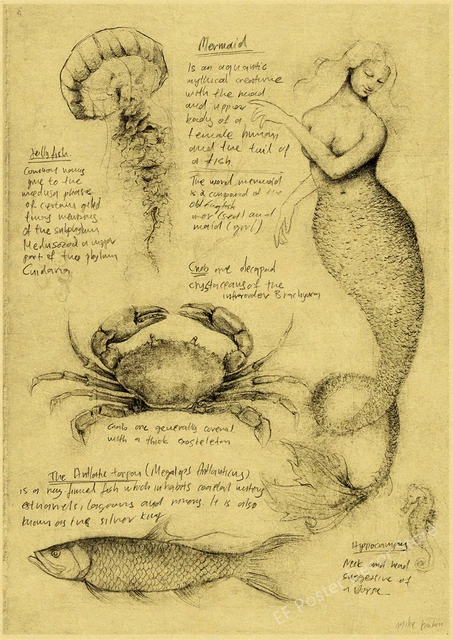 Mermaid
Is an aquatic
mythical creature
with the head
and upper
body of a
female human
and the tail of
a fish.
The word mermaid
is a compound of the
old English
mer (sea) and
maid (girl)
Jellyfish
Common name
give to the
medusa phase
of certain
of the subphylum
Medusozoa a major
part of the phylum
Cnidaria
Crab are decapod
crustaceans of the
infraorder Brachyura
Crab are generally covered
with a thick exoskeleton
The Atlantic tarpon (Megalops Atlanticus)
is a ray finned fish which inhabits coastal waters
estuaries, lagoons and rivers. It is also
known as the silver king
Hippocampus
Neck and head
suggestive of
a horse
EF Poster